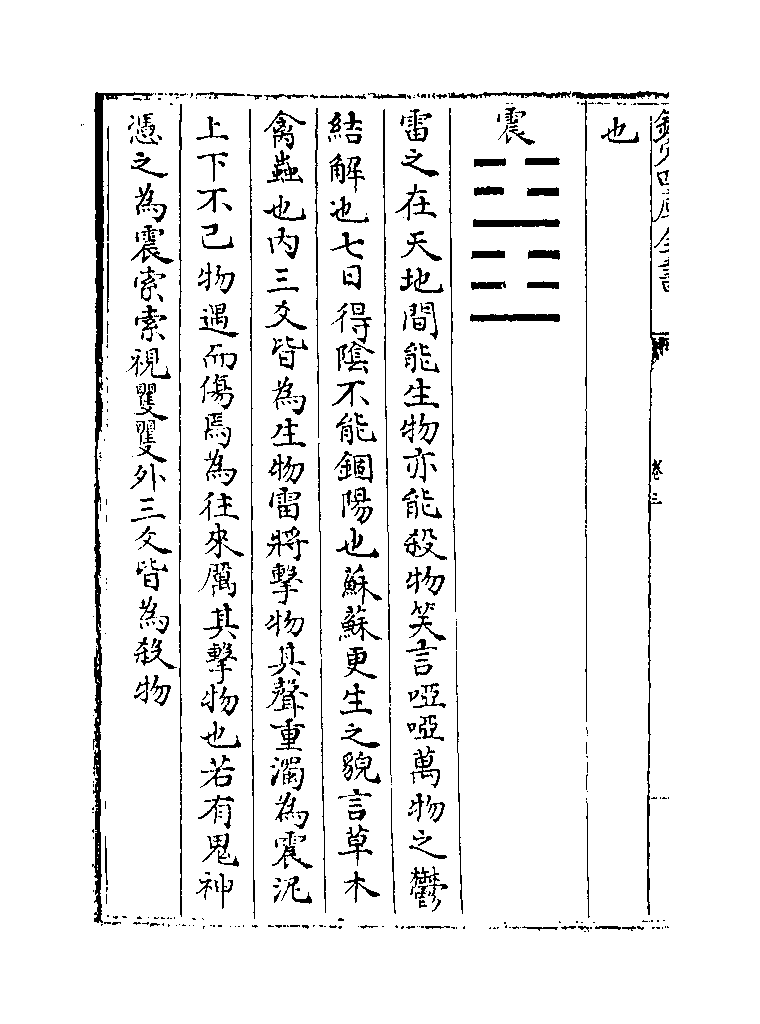 欽定四庫全書
卷三
也
震
雷之在天地間能生物亦能殺物笑言啞啞萬物之鬱
結解也七日得陰不能錮陽也蘇蘇更生之貌言草木
禽蟲也内三爻皆為生物雷將擊物其聲重濁為震泥
上下不已物遇而傷焉為往來厲其擊物也若有鬼神
憑之為震索索視矍矍外三爻皆為殺物